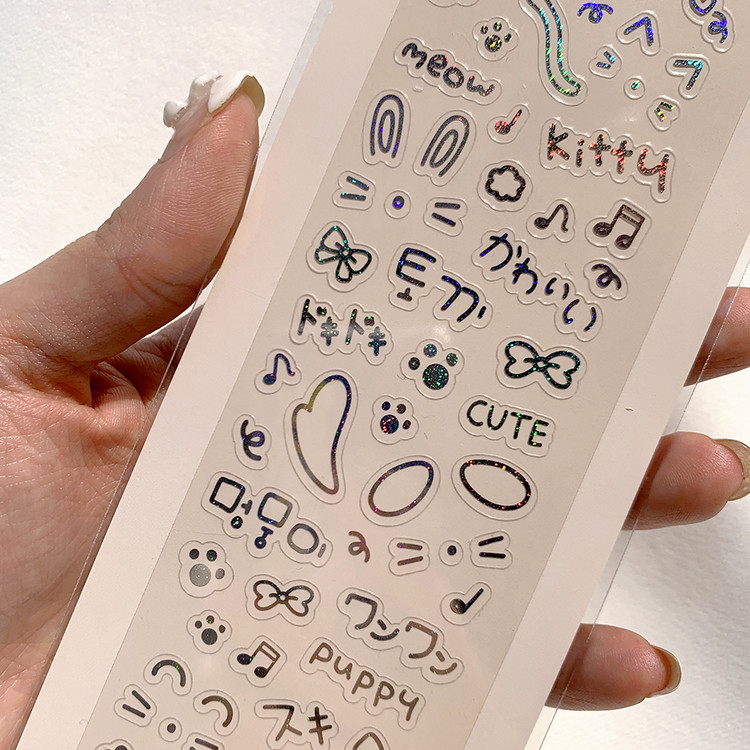 meow
kitty
かわいい
토끼
ドキドキ
CUTE
멍멍이
ワンワン
puppy
スキ